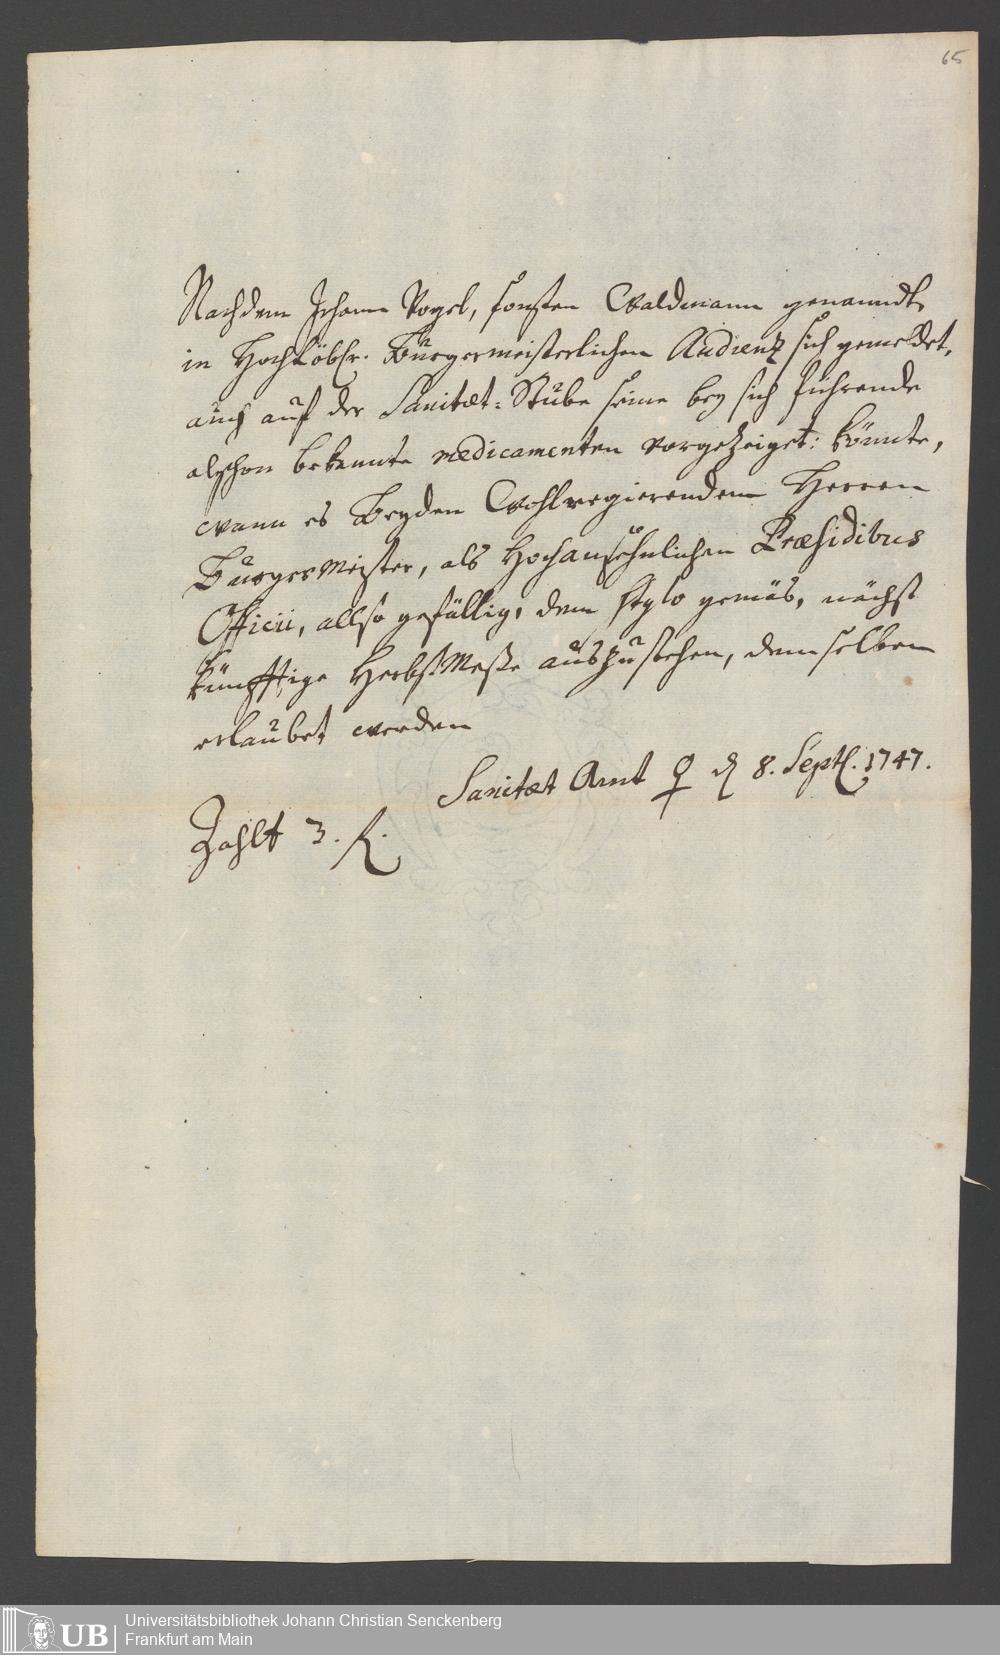 65
Nachdem Johann Vogel, sonsten Waldmann genanndt,
in Hochlöbl. Burgermeisterlichen Audienz sich gemeldet,
auch auf der Sanitæt-Stube seine bey sich führende
alschon bekannte medicamenten vorgezeiget: könnte,
wann es Beyden Wohlregierenden Herren
BurgerMeister, als Hochansehnlichen Præsidibus
Officii, allso gefällig, dem stylo gemäs, nächst
künfftige HerbstMesse auszustehen, demselben
erlaubet werden
Sanitæt Amt ♀ d. 8. Septl. 1747.
Zahlt 3. fl.
UB
Universitätsbibliothek Johann Christian Senckenberg
Frankfurt am Main